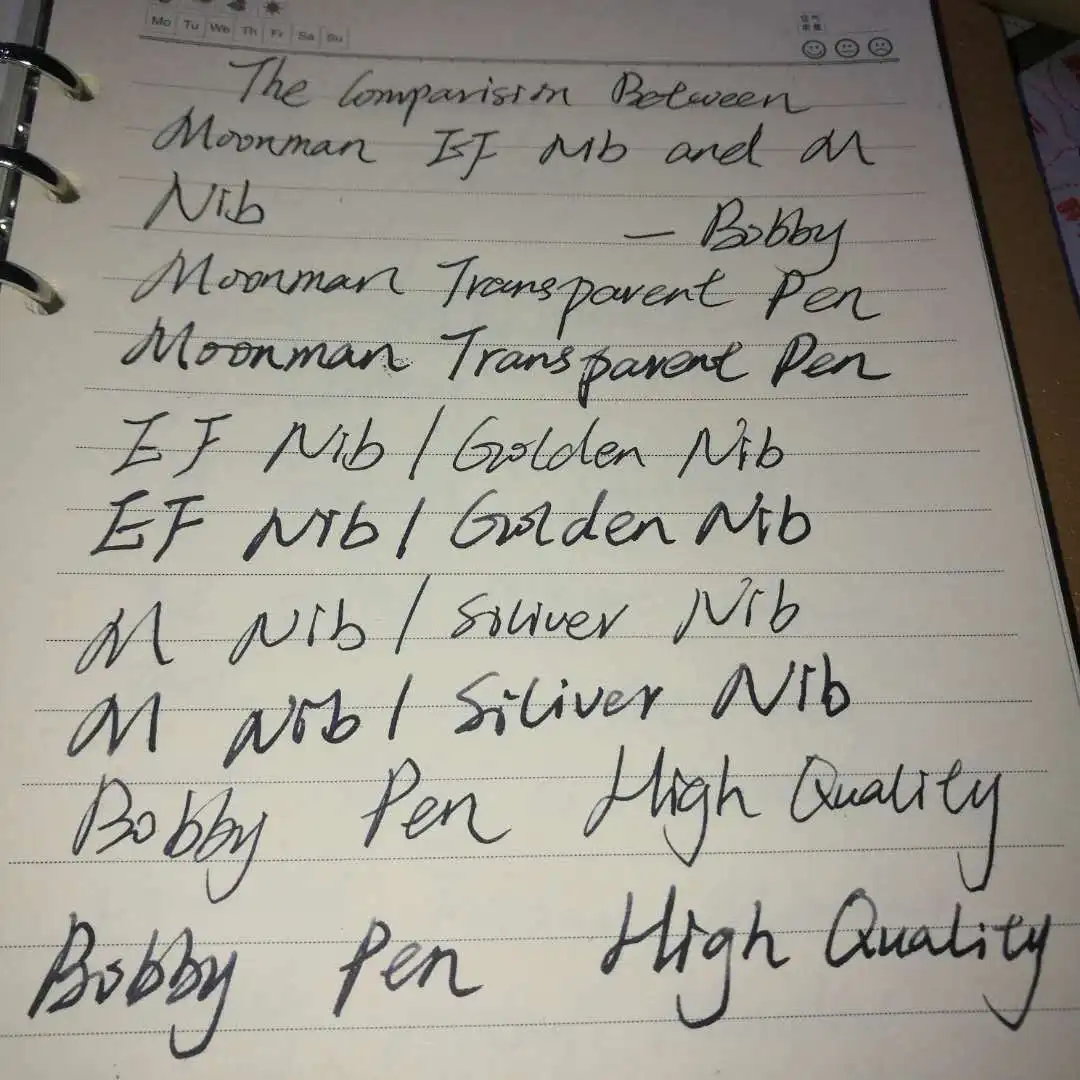 Mo Tu We Th Fr Sa Su
The Comparision Between
Moonman EF Nib and M
Nib — Bobby
Moonman Transparent Pen
Moonman Transparent Pen
EF Nib / Golden Nib
EF Nib / Golden Nib
M Nib / Siliver Nib
M Nib / Siliver Nib
Bobby Pen High Quality
Bobby Pen High Quality